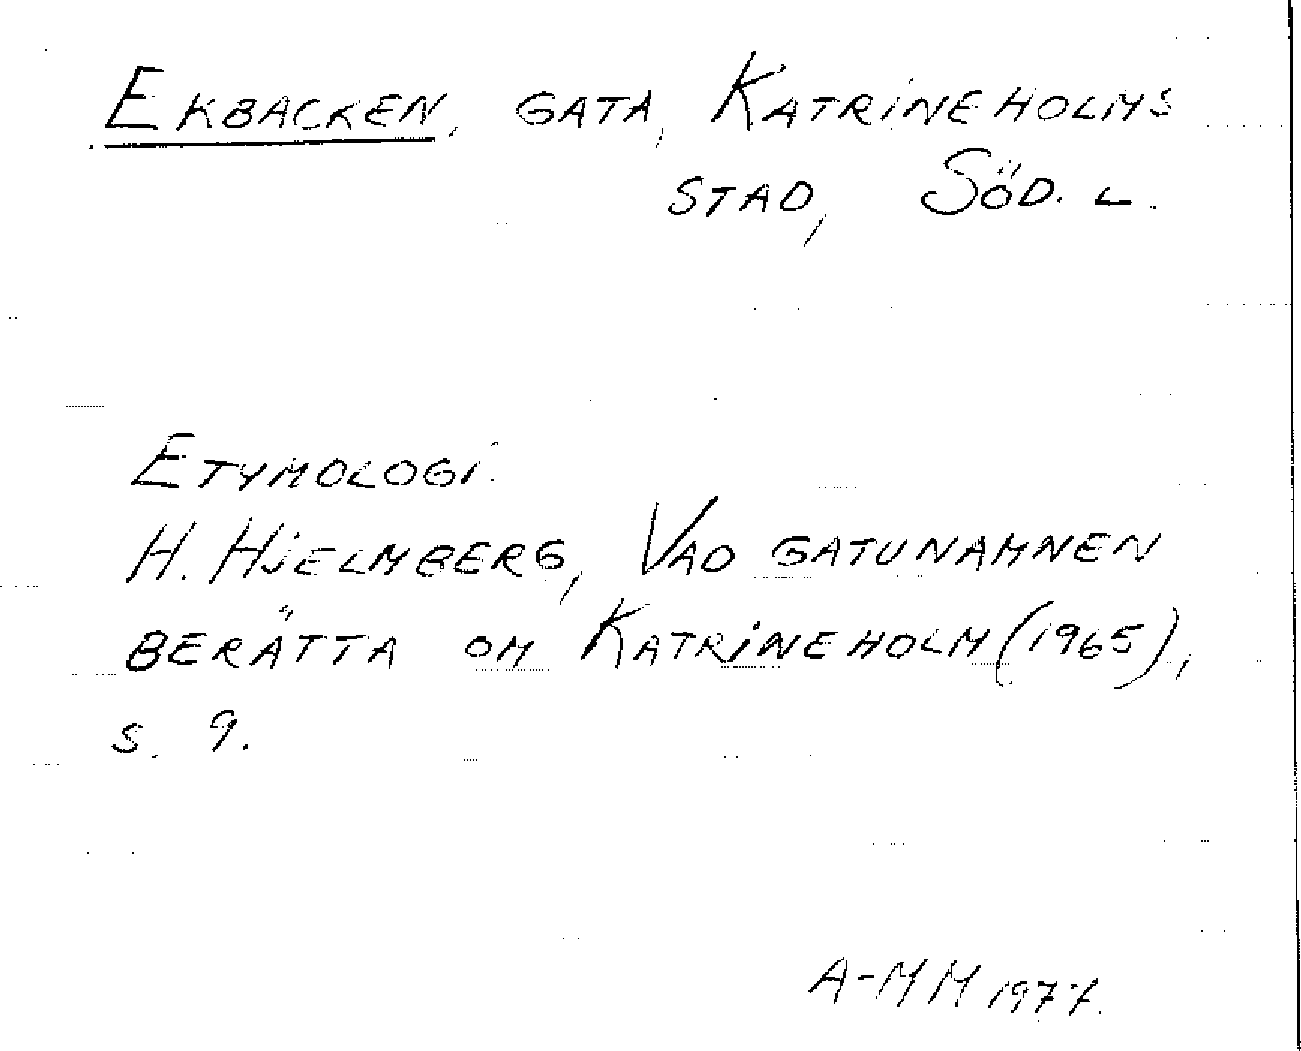 EKBACKEN, GATA, KATRINEHOLMS
STAD, SÖD. L.
ETYMOLOGI.
H. HJELMBERG, VAD GATUNAMNEN
BERÄTTA OM KATRINEHOLM (1965),
S. 9.
A-MM 1977.